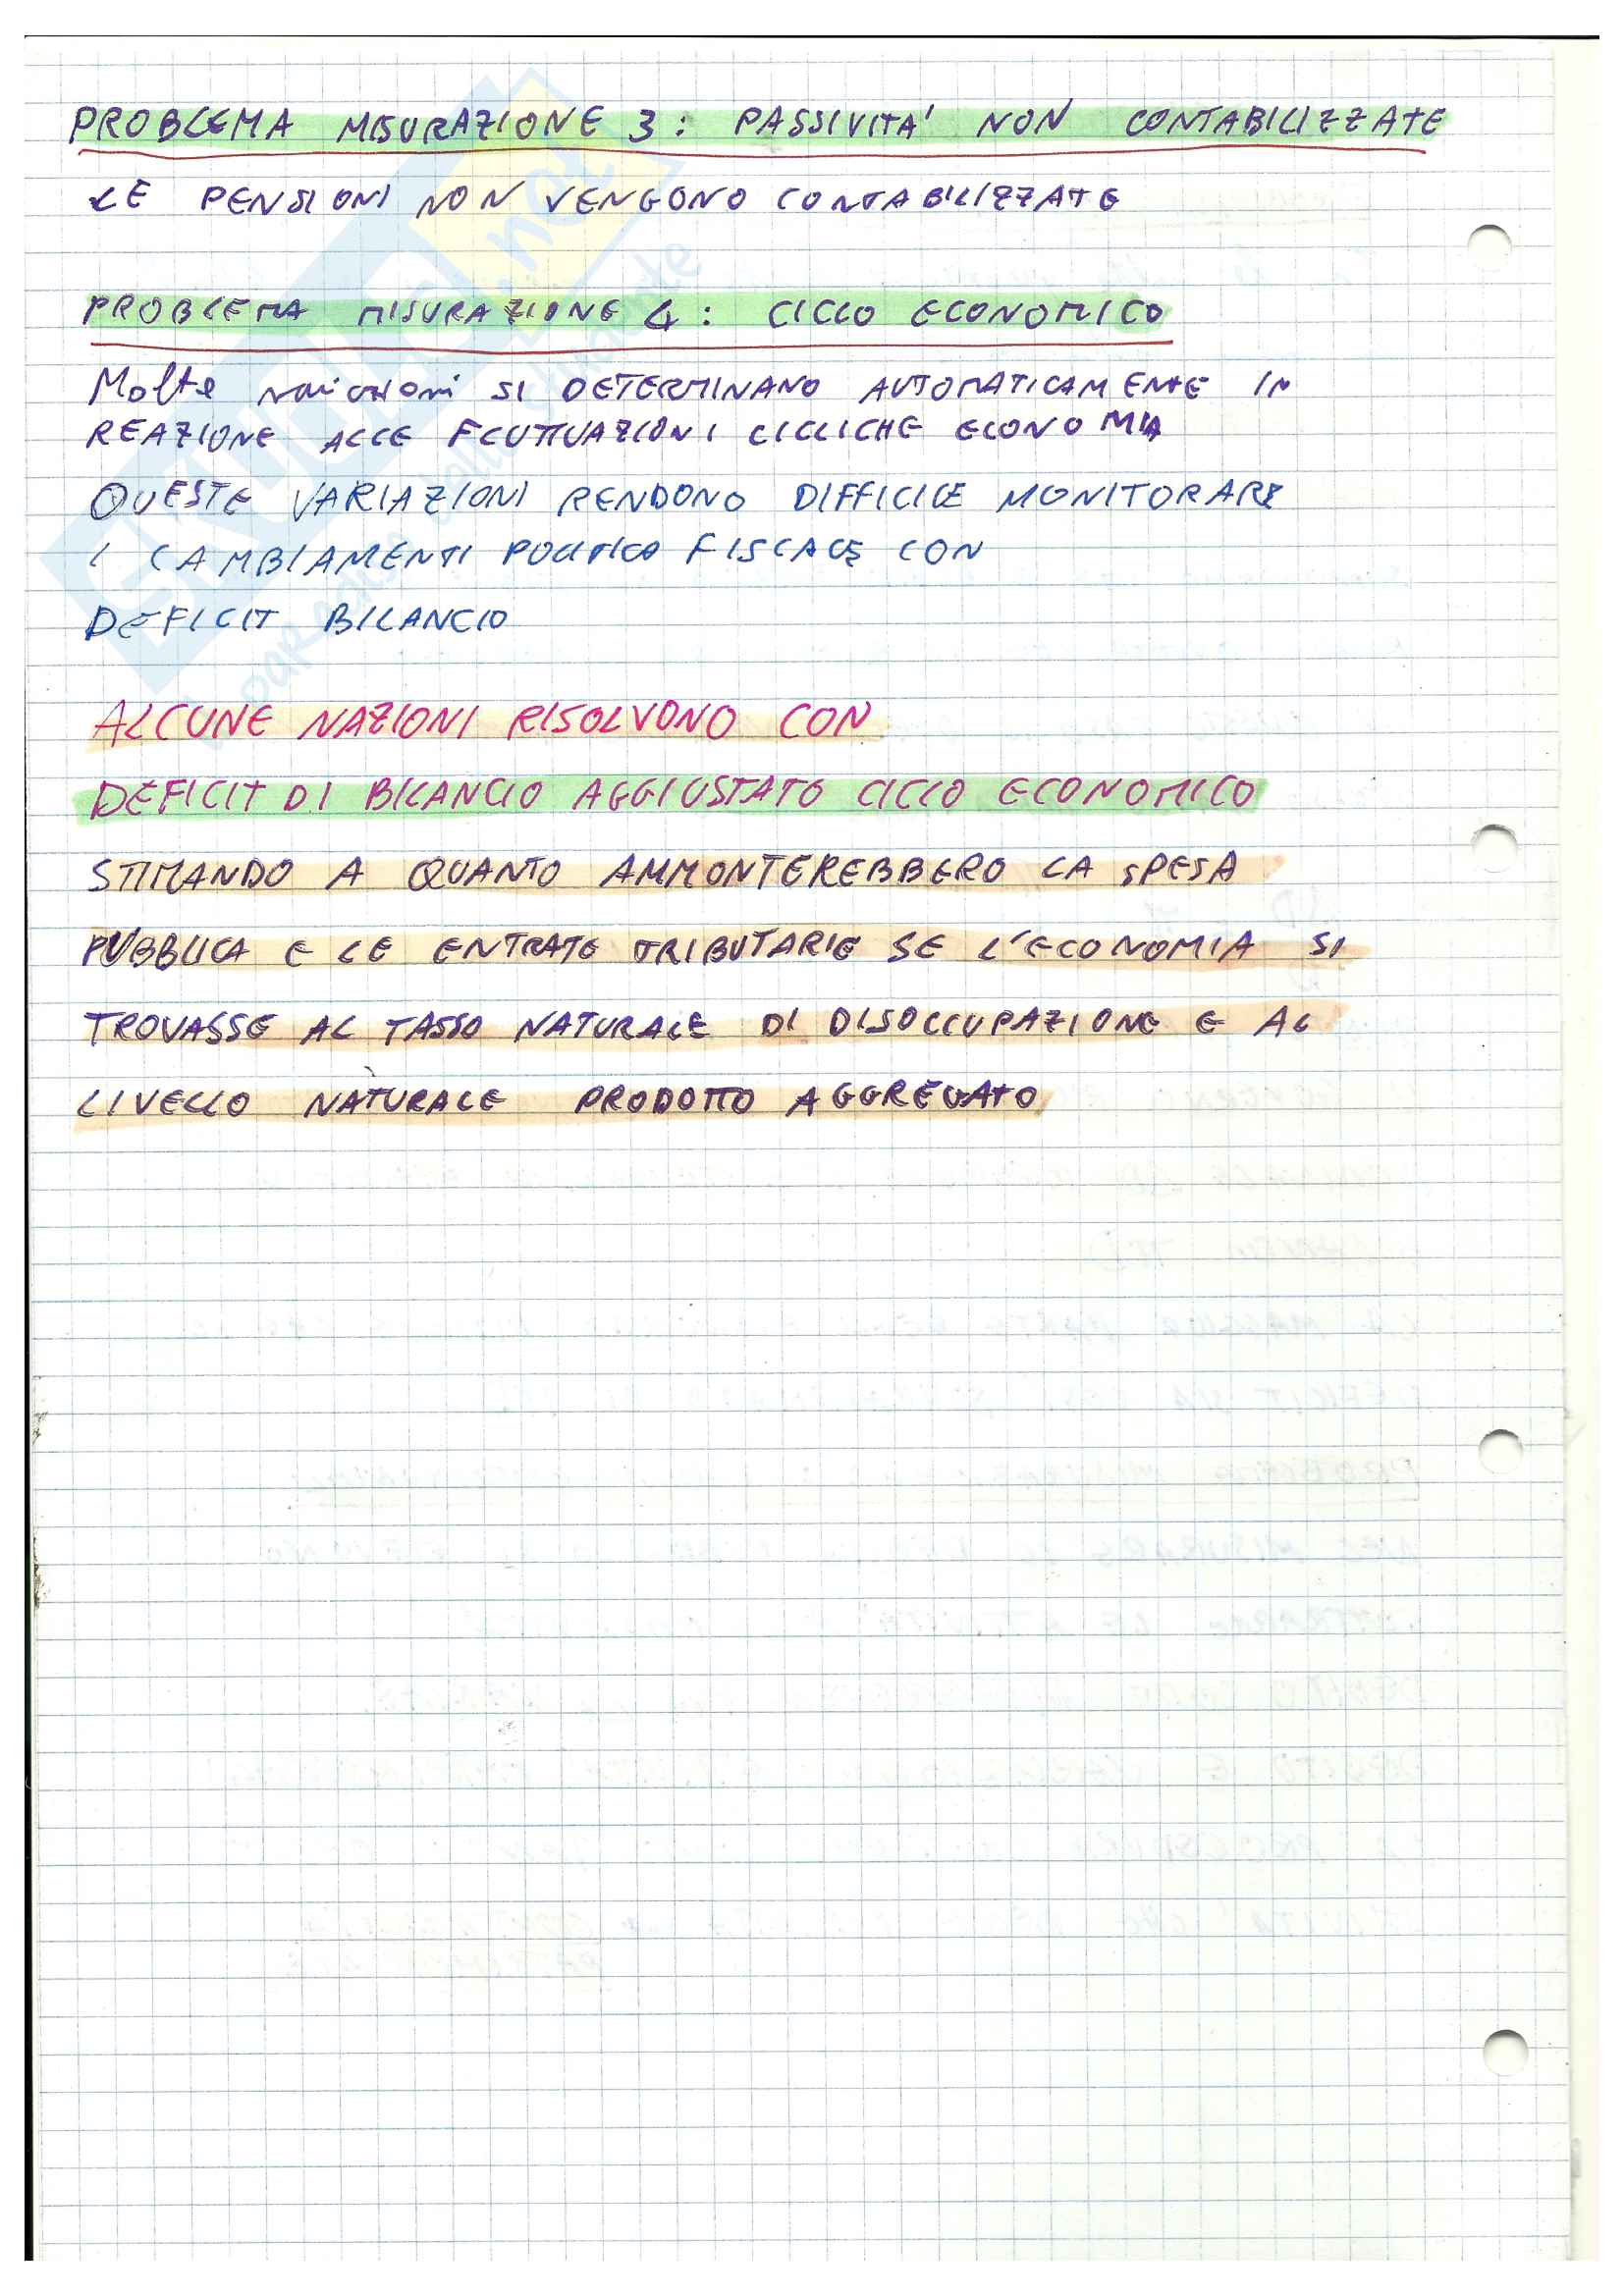 PROBLEMA MISURAZIONE 3: PASSIVITA' NON CONTABILIZZATE
LE PENSIONI NON VENGONO CONTABILIZZATE
PROBLEMA MISURAZIONE 4: CICLO ECONOMICO
Molte SI DETERMINANO AUTOMATICAMENTE IN
REAZIONE ALLE FLUTTUAZIONI CICLICHE ECONOMIA
QUESTE VARIAZIONI RENDONO DIFFICILE MONITORARE
I CAMBIAMENTI POLITICA FISCALE CON
DEFICIT BILANCIO
ALCUNE NAZIONI RISOLVONO CON
DEFICIT DI BILANCIO AGGIUSTATO CICLO ECONOMICO
STIMANDO A QUANTO AMMONTEREBBERO LA SPESA
PUBBLICA E LE ENTRATE TRIBUTARIE SE L'ECONOMIA SI
TROVASSE AL TASSO NATURALE DI DISOCCUPAZIONE E AL
LIVELLO NATURALE PRODOTTO AGGREGATO